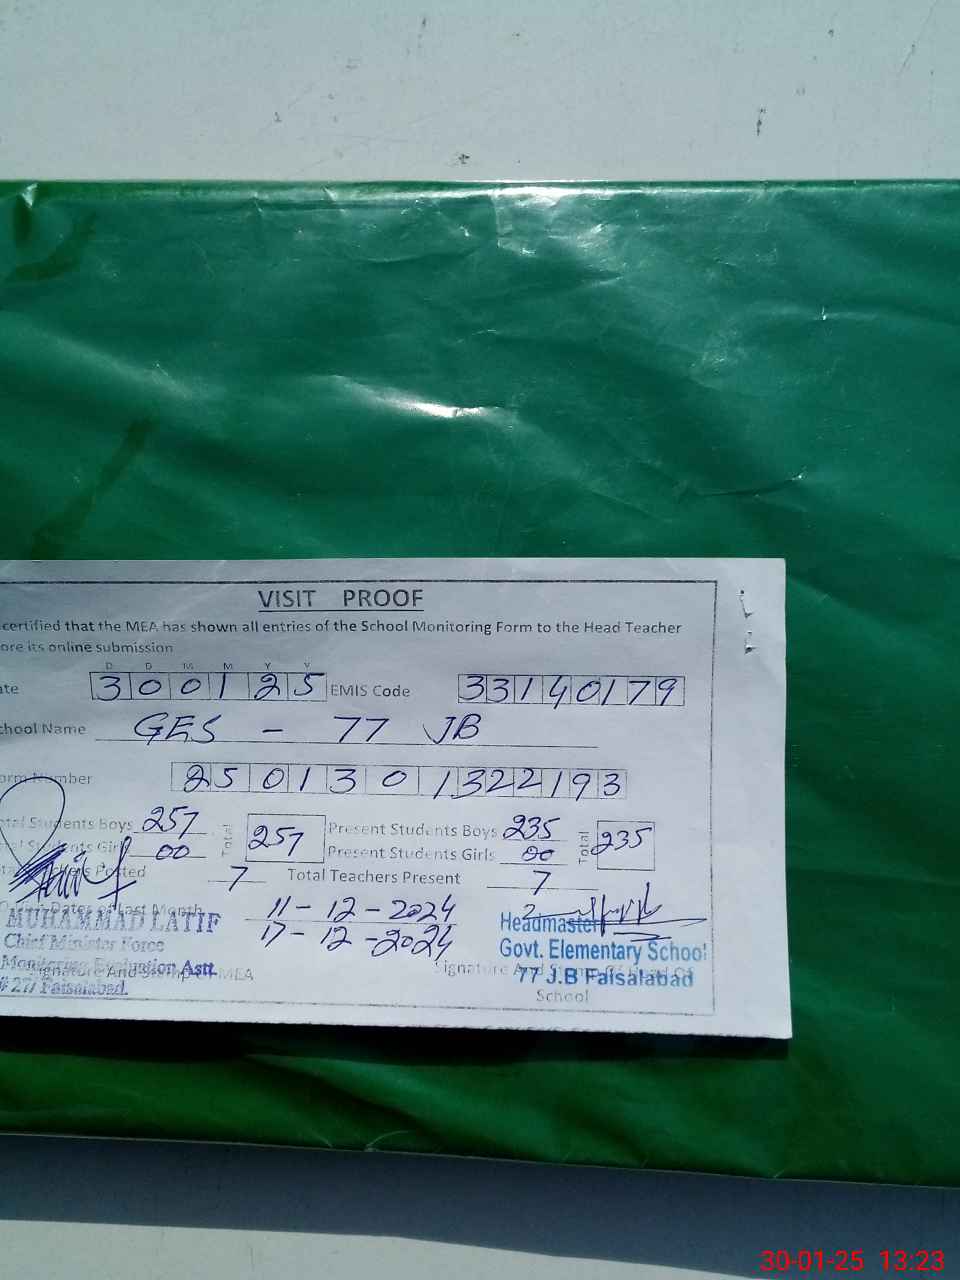 VISIT PROOF
certified that the MEA has shown all entries of the School Monitoring Form to the Head Teacher
ore its online submission
D D M M Y Y
ate 300125 EMIS Code 33140179
chool Name GES - 77 JB
orm Number 2501301322193
tal Students Boys 257 Total 257 Present Students Boys 235 Total 235
Students Girl 00 Present Students Girls 00
Posted 7 Total Teachers Present 7
Dates of Last Month 11-12-2024
17-12-2024
MUHAMMAD LATIF
Chief Minister Force
Monitoring Evaluation Astt
# 27/ Faisalabad.
Signature And Stamp of MEA
Headmaster
Govt. Elementary School
77 J.B Faisalabad
Signature And Stamp Of Head Of
School
30-01-25 13:23